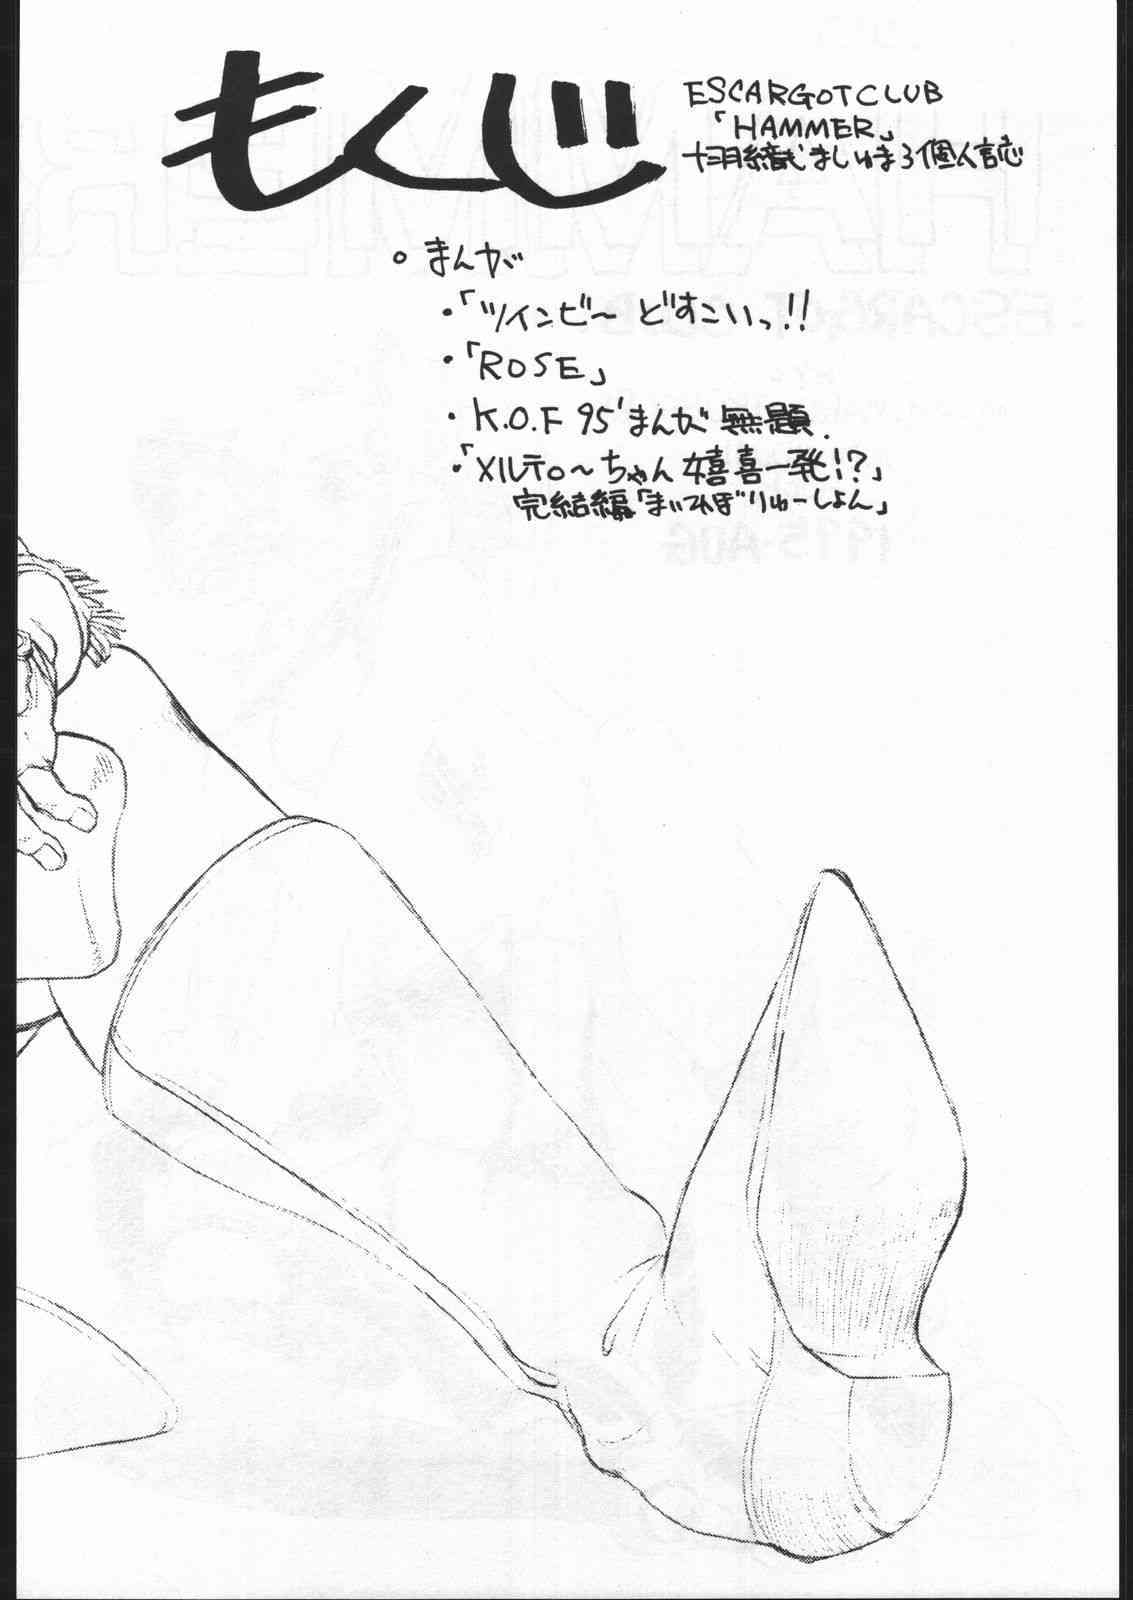 もくじ
ESCARGOT CLUB
「HAMMER」
ましゅまろ個人誌
まんが
・「ツインビ～ どすこいっ!!
・「ROSE」
・K.O.F 95'まんが 無題.
・「メルテo～ちゃん 嬉喜一発!?」
完結編「まいてれぼりゅーしょん」